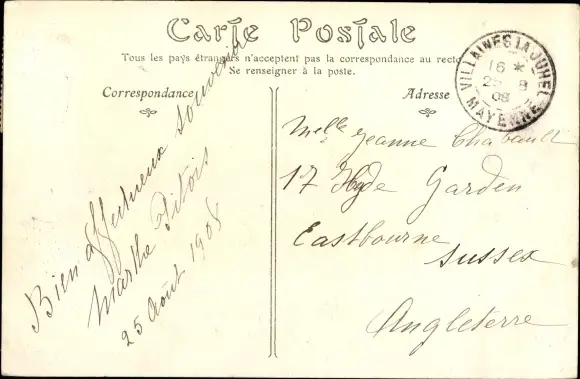 Carte Postale
Tous les pays étrangers n'acceptent pas la correspondance au recto
Se renseigner à la poste.
Correspondance
Adresse
VILLAINES LA JUHEL
16 *
25 8
08
MAYENNE
Bien affectueux souvenir
Marthe Pitois
25 Août 1908
Melle Jeanne Chabault
17 Hyde Garden
Eastbourne
Sussex
Angleterre